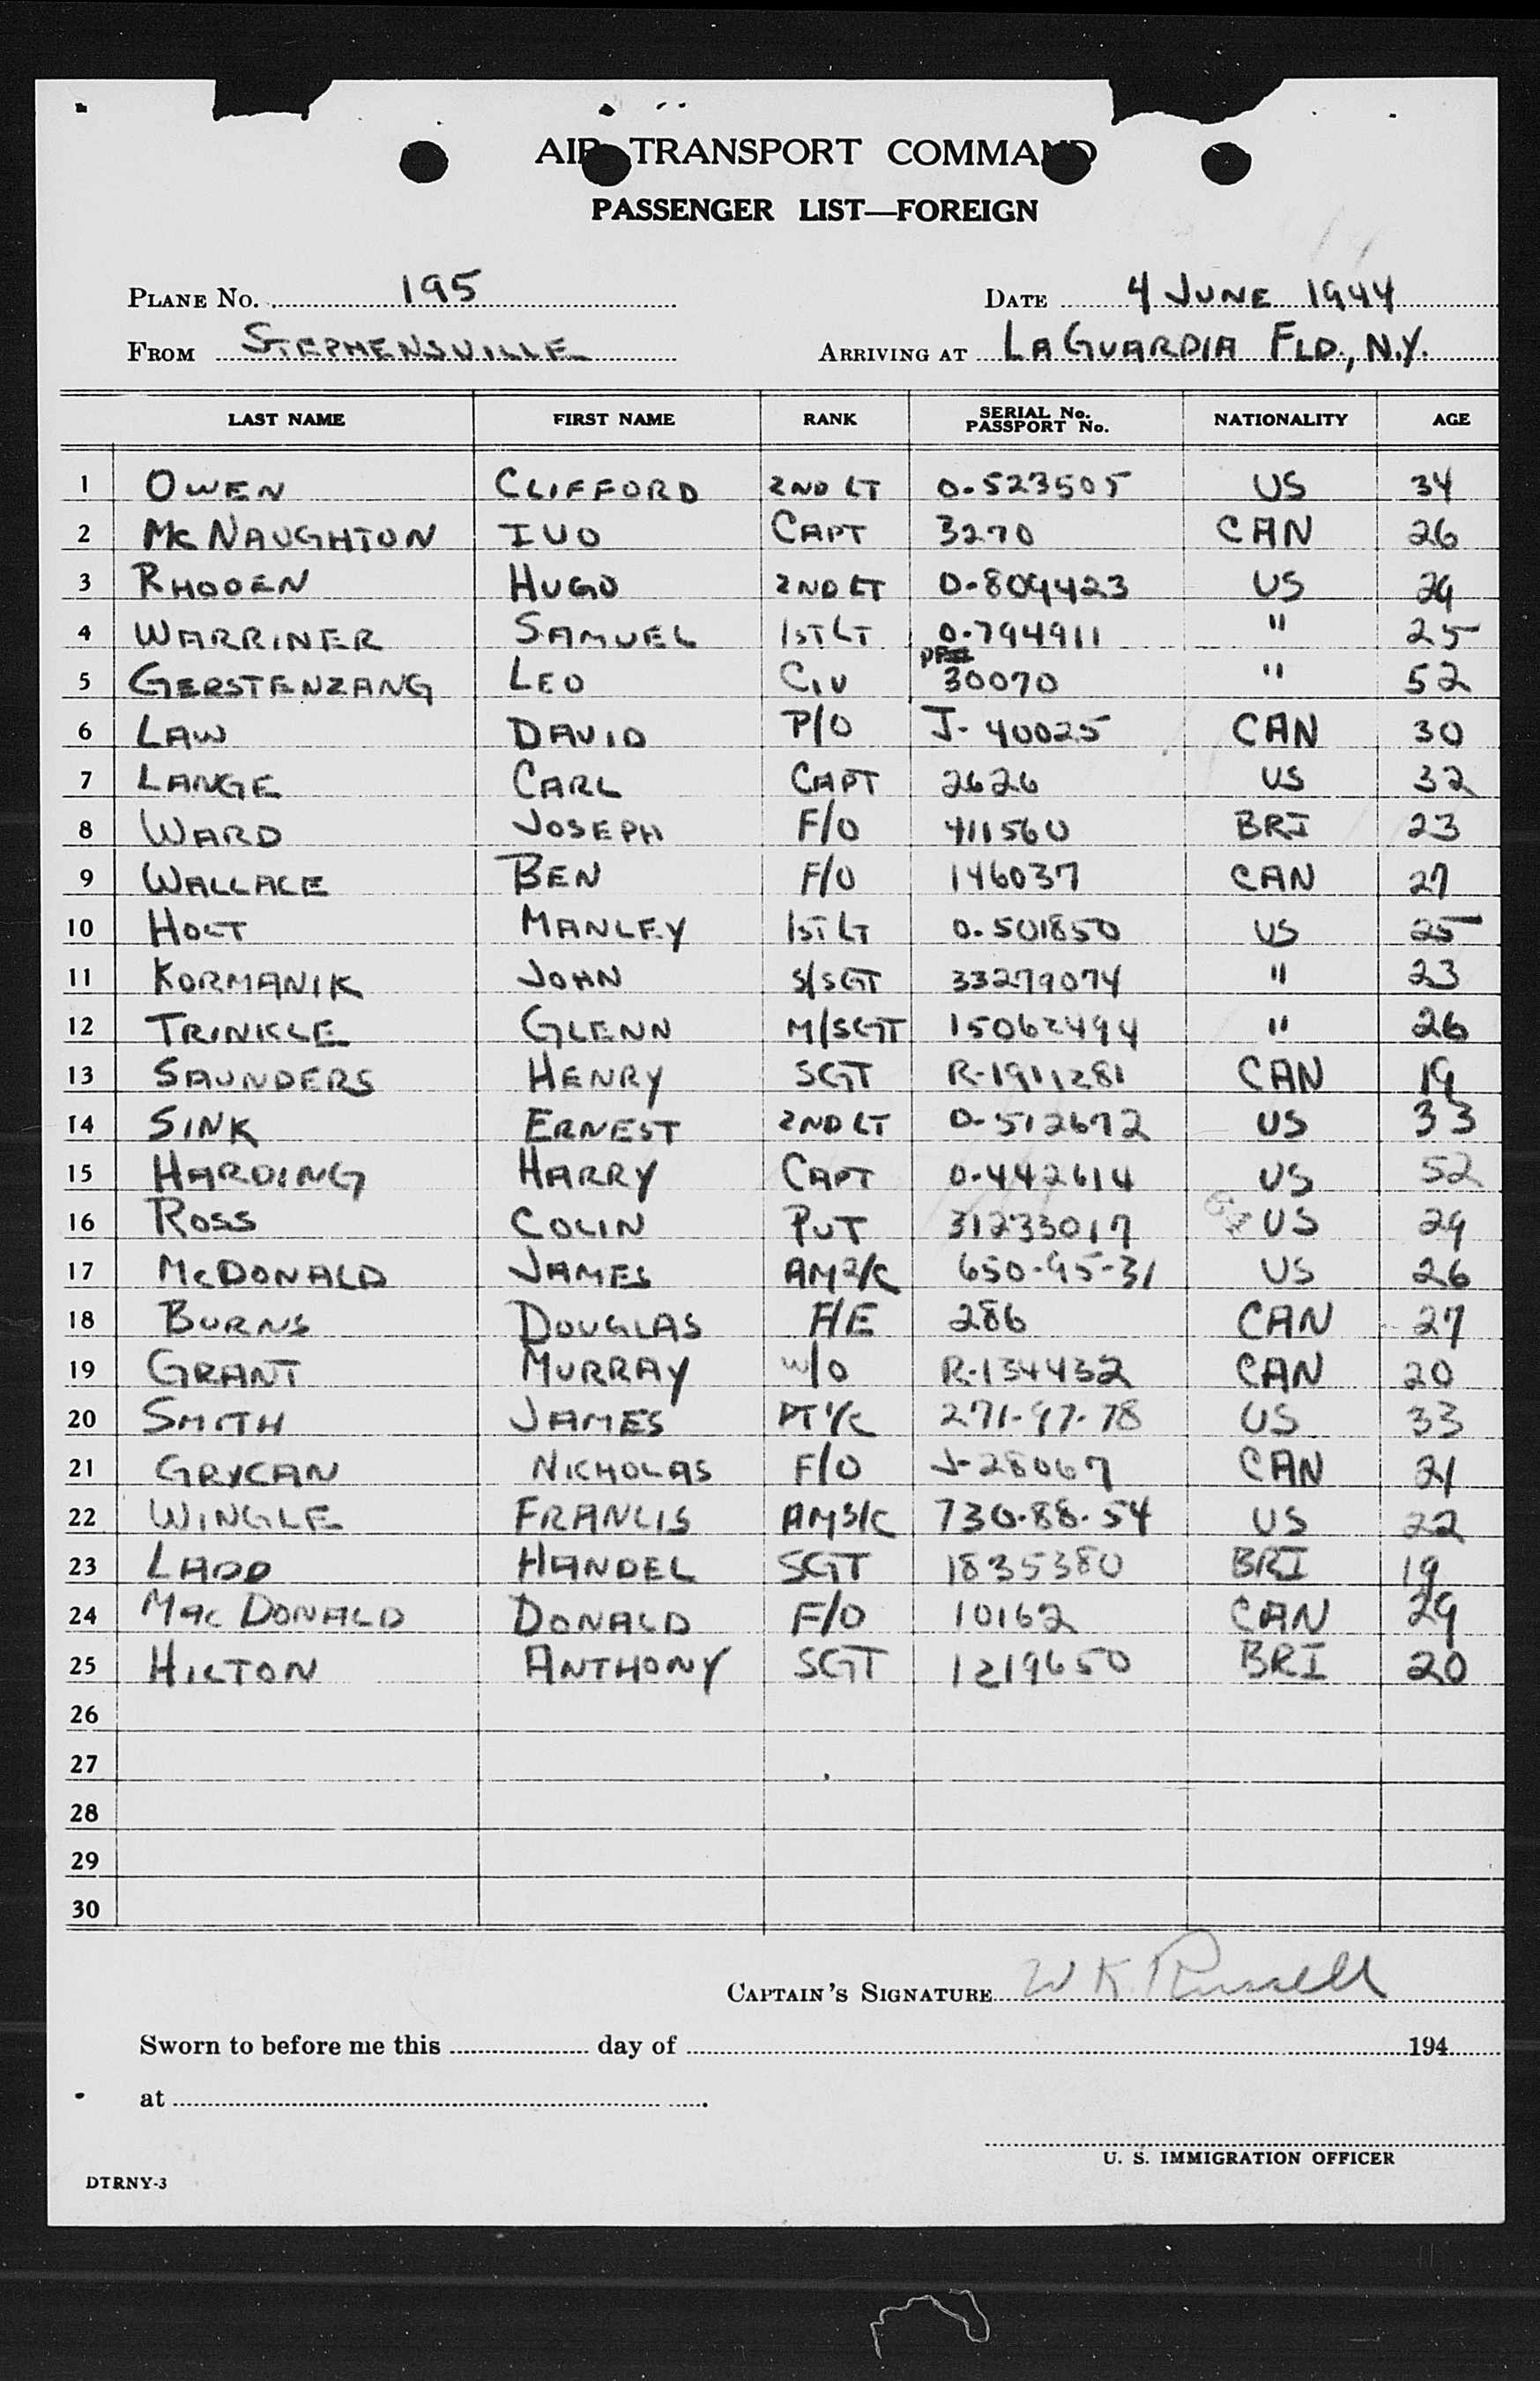 AIR TRANSPORT COMMAND
PASSENGER LIST—FOREIGN
PLANE No. 195 DATE 4 JUNE 1944
FROM STEPHENSVILLE ARRIVING AT LAGUARDIA FLD., N.Y.
LAST NAME FIRST NAME RANK SERIAL No. PASSPORT No. NATIONALITY AGE
1 OWEN CLIFFORD 2ND LT O-523505 US 34
2 McNAUGHTON IVO CAPT 3270 CAN 26
3 RHODEN HUGO 2ND LT O-809423 US 29
4 WARRINER SAMUEL 1ST LT O-794911 " 25
5 GERSTENZANG LEO CIV 30070 " 52
6 LAW DAVID P/O J-40025 CAN 30
7 LANGE CARL CAPT 2626 US 32
8 WARD JOSEPH F/O 411560 BRI 23
9 WALLACE BEN F/O 146037 CAN 27
10 HOLT MANLEY 1ST LT O-501850 US 25
11 KORMANIK JOHN S/SGT 33279074 " 23
12 TRINKLE GLENN M/SGT 15062494 " 26
13 SAUNDERS HENRY SGT R-1911281 CAN 19
14 SINK ERNEST 2ND LT O-512672 US 33
15 HARDING HARRY CAPT O-442614 US 52
16 ROSS COLIN PVT 31233017 US 29
17 McDONALD JAMES AM2/C 650-95-31 US 26
18 BURNS DOUGLAS F/E 286 CAN 27
19 GRANT MURRAY W/O R-134432 CAN 20
20 SMITH JAMES 271-97-78 US 33
21 GRYCAN NICHOLAS F/O J-28067 CAN 21
22 WINGLE FRANCIS AM3/C 730-88-54 US 22
23 LADD HANDEL SGT 1835380 BRI 19
24 MacDONALD DONALD F/O 10162 CAN 29
25 HILTON ANTHONY SGT 1219650 BRI 20
26
27
28
29
30
CAPTAIN'S SIGNATURE W K. Russell
Sworn to before me this day of 194
at
U. S. IMMIGRATION OFFICER
DTRNY-3